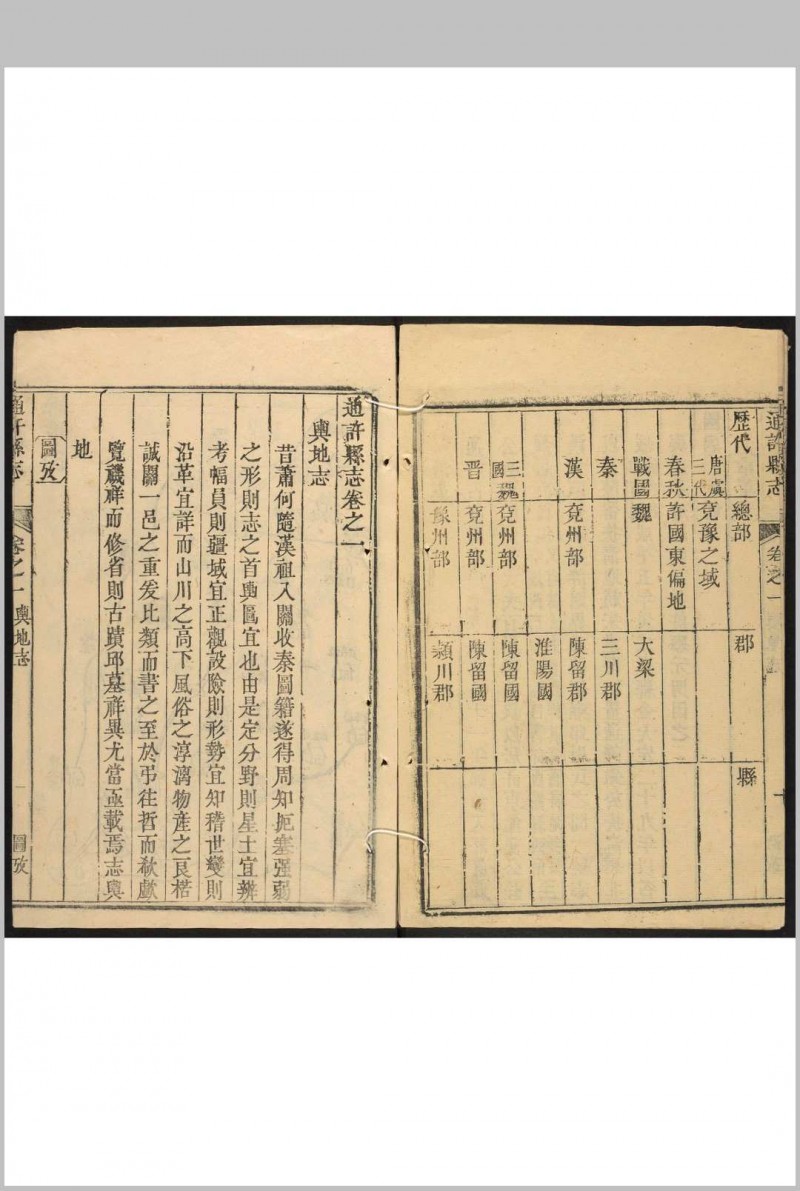 通許縣志 卷之一
歷代 總部 郡 縣
唐虞三代 兗豫之域
春秋 許國東偏地
戰國 魏 大梁
秦 三川郡
漢 兗州部 陳留郡
淮陽國
三國魏 兗州部 陳留國
晉 兗州部 陳留國
豫州部 潁川郡
通許縣志卷之一
輿地志
昔蕭何隨漢祖入關收秦圖籍遂得周知扼塞强弱
之形則志之首輿圖宜也由是定分野則星土宜辨
考幅員則疆域宜正觀設險則形勢宜知稽世變則
沿革宜詳而山川之高下風俗之淳漓物産之良楛
誠關一邑之重爰比類而書之至於弔往哲而欷歔
覽禨祥而修省則古蹟邱墓祥異尤當亟載焉志輿
地
圖攷
通許縣志 卷之一 輿地志 圖攷